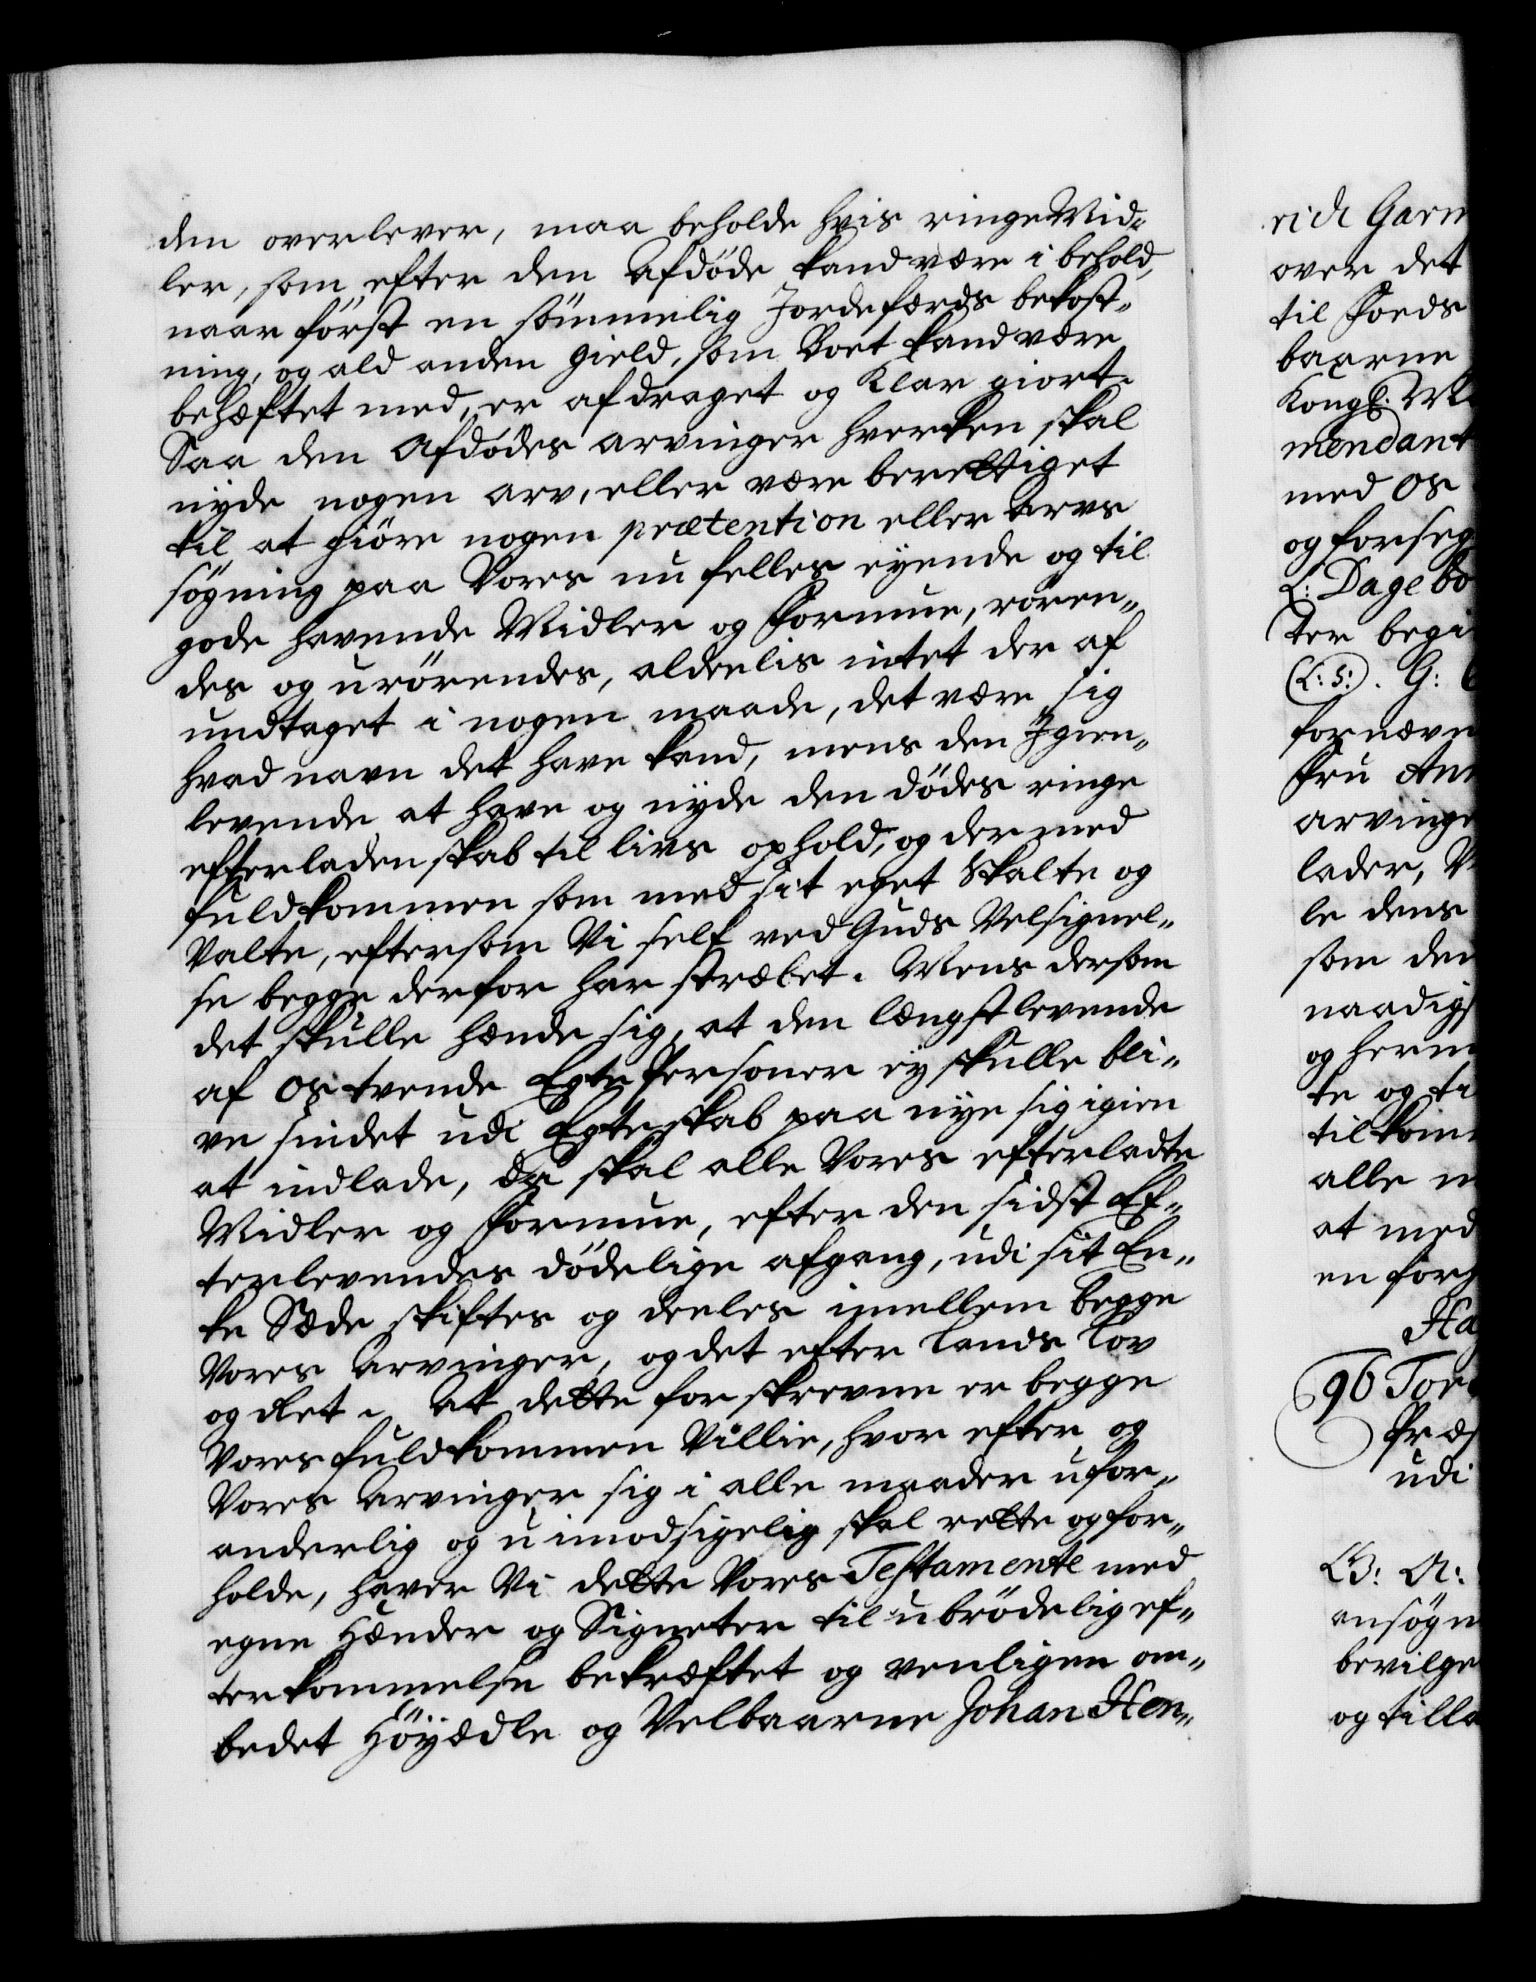 den overlever, maa beholde hvis ringe Mid-
ler, som efter den afdøde kand være i behold,
naar først en sømmelig Jordefærds bekost-
ning, og ald anden gield, som Boet kand være
behæftet med, er afdraget og klar giort.
Saa den afdødes arvinger hverken skal
nyde nogen arv, eller være berettiget
til at giöre nogen prætention eller arvs
søgning paa Vores nu felles eyende og til
gode havende Midler og Formue, røren-
des og urørendes, aldeelis intet der af
undtaget i nogen maade, det være sig
hvad navn det have kand, mens den Igien-
levende at have og nyde den dödes ringe
efterladenskab til livs ophold, og dermed
fuldkommen som med sit eget skalte og
valte, eftersom Vi self ved Guds Velsignel-
se begge derfor har stræbet. Mens dersom
det skulle hænde sig, at den længstlevende
af os tvende Egte Personer ey skulle bli-
ve sindet udi Egteskab paa nye sig igien
at indlade, da skal alle Vores efterladte
Midler og Formue, efter den sidst Ef-
terlevendes dödelige afgang, udi sit En-
ke Sæde skiftes og deeles imellem begge
Vores arvinger, og det efter Lands Lov
og Ret. At dette forskrevne er begge
Vores fuldkommen Villie, hvor efter og
Vores arvinger sig i alle maader ufor-
anderlig og uimodsigelig skal rette og for-
holde, haver Vi dette Vores Testamente med
egne Hænder og Signeter til ubrödelig ef-
terkommelse bekræftet og venligen om-
bedet Höyædle og Velbaarne Johan Hen-
rich Garm
over det
til Fords
baarne
Kongl: M
mendant
med os
og forseg
L: Dagebo
ter begi
(L: S:). G:
fornævn
Fru Ann
arvinge
lader, V
le dens
som den
naadigs
og herm
te og ti
tilkom
alle m
at med
en forg
Ha
96 Tor
Præs
udi
G: A:
ansögn
bevilge
og tilla